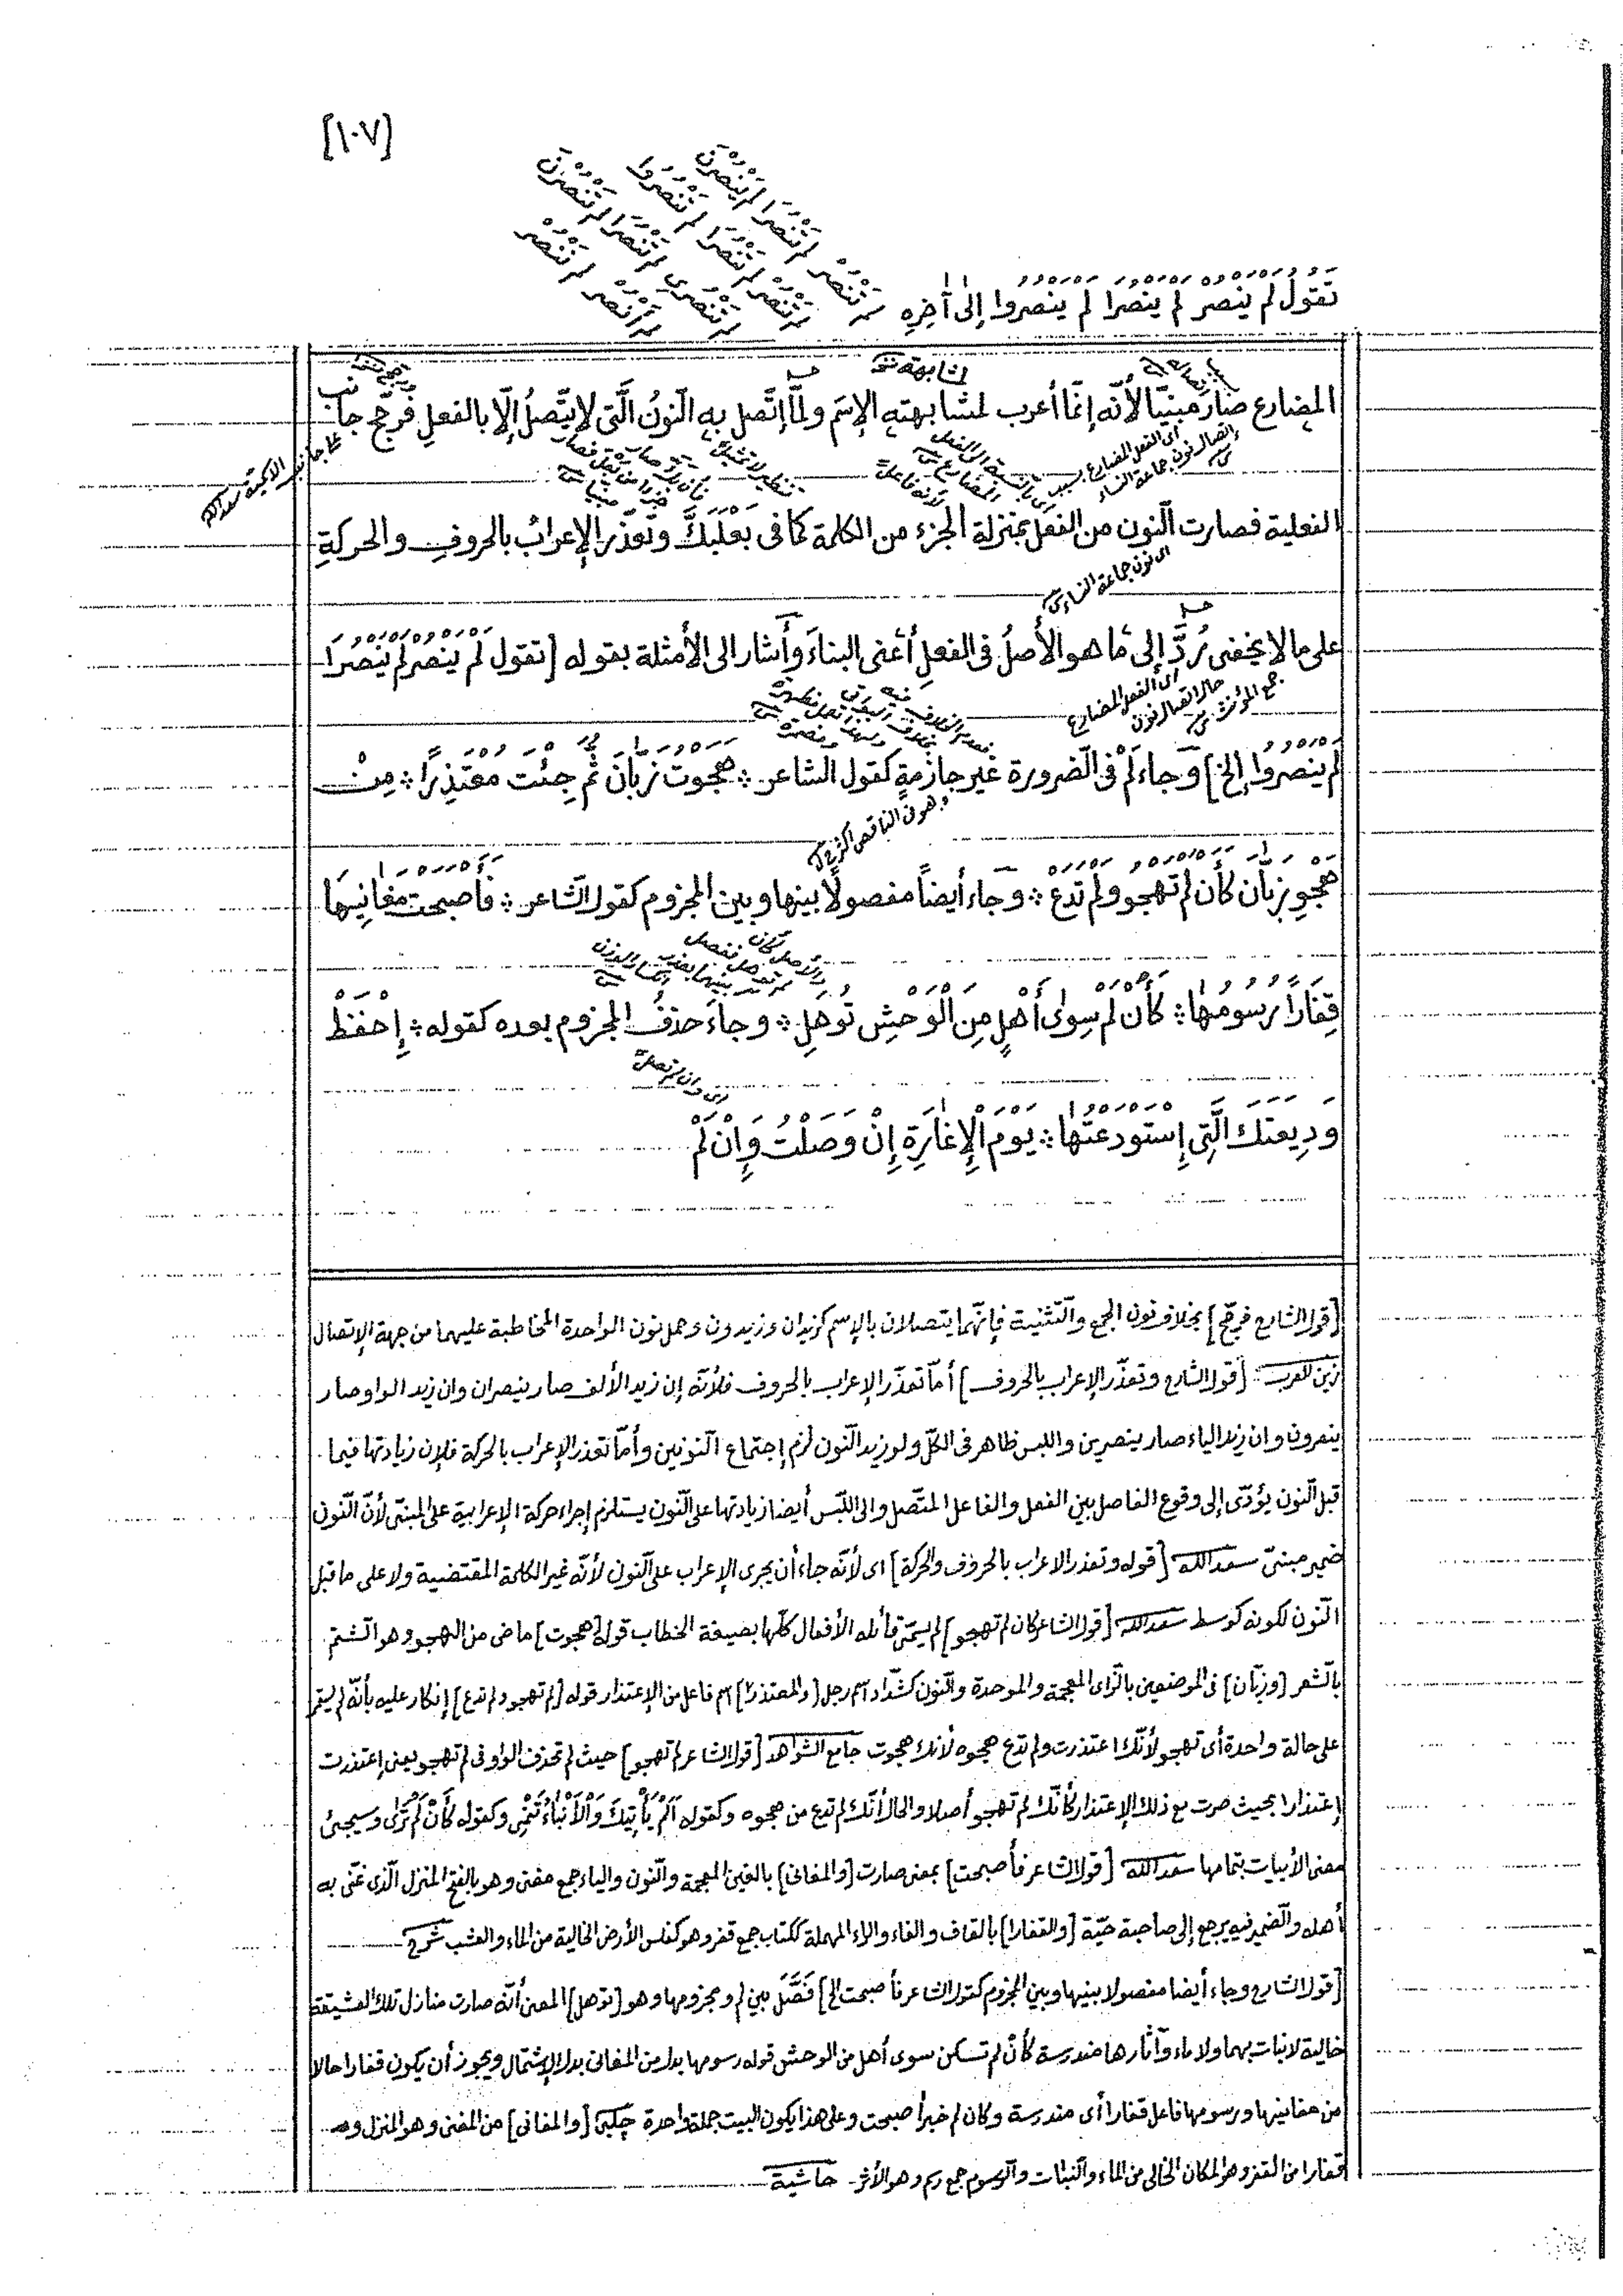 [١٠٧]
لم تنصر لم تنصرا لم ينصرن
لم تنصر لم تنصرا لم تنصروا
لم تنصري لم تنصرا لم تنصرن
لم أنصر لم ننصر
تَقُولُ لَمْ يَنْصُرْ لَمْ يَنْصُرَا لَمْ يَنْصُرُوا إِلىٰ آخِرِهِ
المضارع صَارَ مَبنيّا لأنّه إنّما أعرب لمشابهته الإسم ولمّا إتّصل به النّونُ الّتى لا يتّصلُ إلّا بالفعلِ فرجّح جانب
لمشابهة نحو
اى الفعل المضارع بسبب
إتصال نون جماعة النساء
على جانب الاسمية سعد الله
الفعلية فصارت النون من الفعل بمنزلة الجزء من الكلمة كما فى بَعْلَبَكَّ وتعذّر الإعرابُ بالحروفِ والحركةِ
اى نون جماعة النساء
على مالا يخفى رُدَّ إلى مَا هو الأصلُ فى الفعلِ أعنى البناءَ وأشار الى الأمثلة بقوله [تقول لَمْ يَنْصُرْ لَمْ يَنْصُرَا
اى الفعل المضارع
حال اتصال نون
جمع المؤنث
لَمْ يَنْصُرُوا إلخ] وجاء لَمْ فى الضرورة غير جازمةٍ كقول الشاعر ؞ هَجَوْتَ زَبَّانَ ثُمَّ جِئْتَ مُعْتَذِرًا ؞ مِنْ
وهو فى الناقص اكثر
هَجْوِ زَبَّانَ كَأَنْ لَمْ تَهْجُو وَلَمْ تَدَعِ ؞ وجاء أيضاً مفصولًا بينها وبين المجزوم كقول الشاعر ؞ فَأَصْبَحَتْ مَغَانِيهَا
قِفَارًا رُسُومُهَا ؞ كَأَنْ لَمْ سِوٰى أَهْلٍ مِنَ الْوَحْشِ تُوهَلِ ؞ وجاءَ حذفُ المجزوم بعده كقوله ؞ إِحْفَظْ
اى وان لم تصل
وَدِيعَتَكَ الَّتِى إِسْتَوْدَعْتَهَا ؞ يَوْمَ الْإِغَارَةِ إِنْ وَصَلْتَ وَإِنْ لَمْ
[قول الشارح فرجّح] بخلاف نون الجمع والتّثنية فإنّهما يتصلان بالإسم كزيدان وزيدون وحمل نون الواحدة المخاطبة عليهما من جهة الإتصال
زين العرب [قول الشارح وتعذّر الإعراب بالحروف] أمّا تعذّر الإعراب بالحروف فلأنّه إن زيد الألف صار ينصران وان زيد الواو صار
ينصرون وان زيد الياء صار ينصرين واللبس ظاهر فى الكلّ ولو زيد النّون لزم إجتماع النّونين وأمّا تعذر الإعراب بالحركة فلإن زيادتها فيما
قبل النّون يؤدّى إلى وقوع الفاصل بين الفعل والفاعل المتّصل والى اللّبس أيضا زيادتها على النّون يستلزم إجراء حركة الإعرابية على المبنى لأنّ النّون
ضمير مبنىّ سعد الله [قوله وتعذر الاعراب بالحروف والحركة] اى لأنّه جاء أن يجرى الإعراب على النّون لأنّه غير الكلمة المقتضية ولا على ما قبل
النّون لكونه كوسط سعد الله [قول الشاعر كان لم تهجو] لم يسمّ قائله الأفعال كلّها بصيغة الخطاب قوله [هجوت] ماضى من الهجو وهو الشتم
بالشعر [وزبّان] فى الموضعين بالزّاى المعجمة والموحدة والنّون كشدّاد اسم رجل [والمعتذرا] اسم فاعل من الإعتذار قوله [لم تهجو ولم تدع] إنكار عليه بأنّه لم يستمر
على حالة واحدة أى تهجو لأنّك اعتذرت ولم تدع هجوه لأنك هجوت جامع الشواهد [قول الشاعر لم تهجو] حيث لم تحذف الواو فى لم تهجو يعنى إعتذرت
إعتذارا بحيث صرت مع ذلك الإعتذار كأنّك لم تهجو أصلا والحال أنّك لم تدع من هجوه وكقوله أَلَمْ يَأْتِيكَ وَالْأَنْبَاءُ تَنْمِى وكقوله كَأَنْ لَمْ تَرَى وسيجئ
معنى الأبيات بتمامها سعد الله [قول الشاعر فأصبحت] بمعنى صارت [والمغانى] بالغين المعجمة والنّون والياء جمع مغنى وهو بالفتح المنزل الّذى غنّى به
أهله والضمير فيه يرجع إلى صاحبة حيّة [والقفارا] بالقاف والفاء والراء المهملة ككتاب جمع قفر وهو كفلس الأرض الخالية من الماء والعشب شرح
[قول الشارح وجاء أيضا مفصولا بينها وبين المجزوم كقول الشاعر فأصبحت الخ] فَصَّلَ بين لم ومجزومها وهو [توهل] المعنى أنّه صارت منازل تلك العشيقة
خالية لا نبات بهما ولا ماء وآثارها مندرسة كأن لم تسكن سوى أهل من الوحش قوله رسومها بدل من المغانى بدل الإشتمال ويجوز أن يكون قفارا حالا
من مغانيها ورسومها فاعل قفارا أى مندرسة وكان لم خبر أصبحت وعلى هذا يكون البيت جملة واحدة چلبى [والمغانى] من المغنى وهو المنزل وصـ
قفارا من القفر وهو المكان الخالى من الماء والنبات والرسوم جمع رسم وهو الأثر حاشية